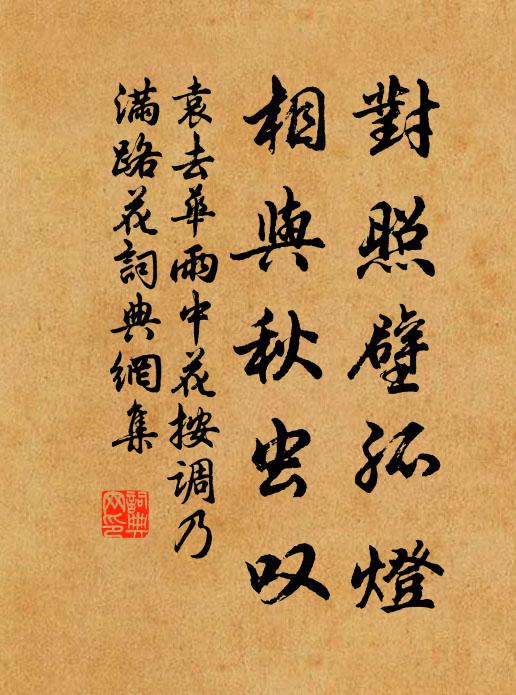 對照壁孤燈
相與秋虫叹
袁去華雨中花按調乃
滿路花詞典網集
詞典網印